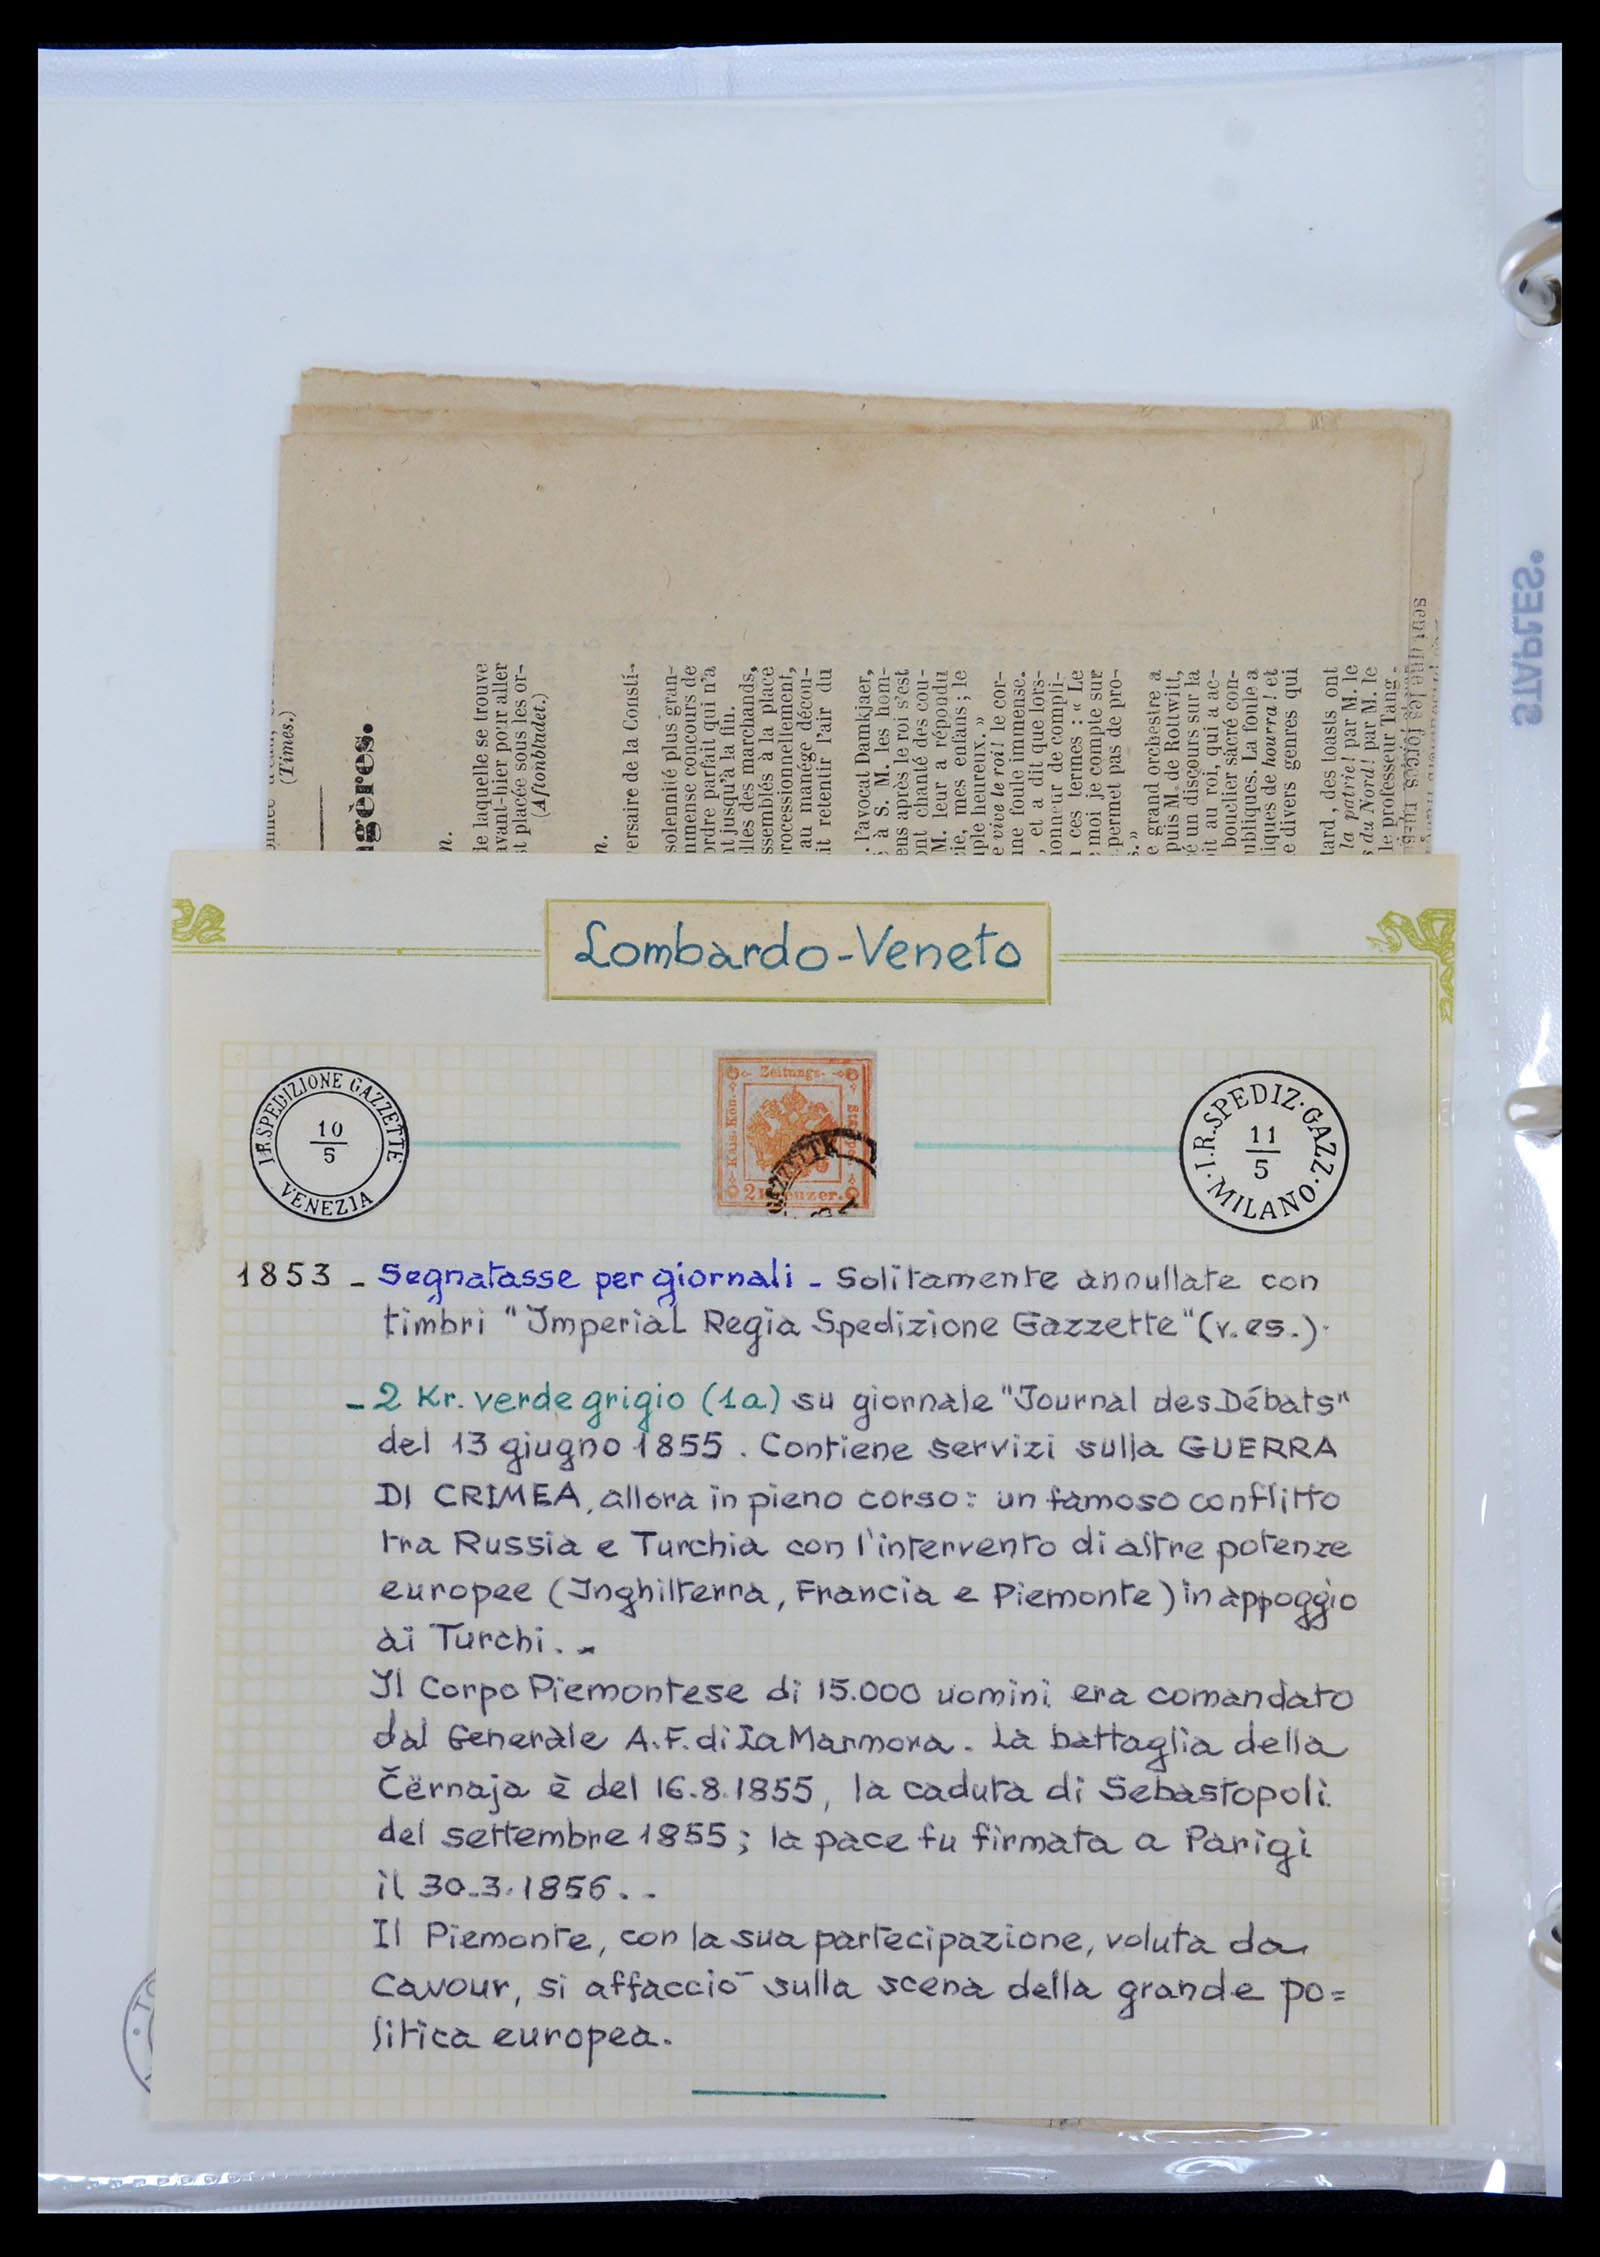 (Times.)
gères.
n.
de laquelle se trouve
avant-hier pour aller
st placée sous les or-
(Aftonbladet.)
n.
ersaire de la Consti-
solennité plus gran-
mmense concours de
ordre parfait qui n'a
nt jusqu'à la fin.
lles des marchands,
ssemblés à la place
rocessionnellement,
au manége décou-
it retentir l'air du
. l'avocat Damkjaer,
à S. M. les hom-
ens après le roi s'est
ont chanté des cou-
M. leur a répondu
ie, mes enfans ; le
ple heureux. »
e vive le roi! le cor-
une foule immense.
, et a dit que lors-
onneur de compli-
n ces termes : « Le
moi je compte sur
permet pas de pro-
s. »
e grand orchestre a
puis M. de Rottwitt,
é un discours sur la
oit au roi, qui a ac-
bouclier sacré con-
ubliques. La foule a
iques de hourra! et
e divers genres qui
tard, des toasts ont
la patrie! par M. le
s du Nord! par M. le
le professeur Tang-
STAPLES
Lombardo-Veneto
I.R. SPEDIZIONE GAZZETTE
10
5
VENEZIA
Zeitungs-
Kais. Kön.
Stämpel
2 Kreuzer.
GAZZETTE
I.R. SPEDIZ. GAZZ.
11
5
MILANO
1853 - Segnatasse per giornali - Solitamente annullate con
timbri "Imperial Regia Spedizione Gazzette" (v. es.).
- 2 Kr. verde grigio (1a) su giornale "Journal des Débats"
del 13 giugno 1855. Contiene servizi sulla GUERRA
DI CRIMEA, allora in pieno corso: un famoso conflitto
tra Russia e Turchia con l'intervento di altre potenze
europee (Inghilterra, Francia e Piemonte) in appoggio
ai Turchi. -
Il Corpo Piemontese di 15.000 uomini era comandato
dal Generale A.F. di La Marmora. La battaglia della
Čërnaja è del 16.8.1855, la caduta di Sebastopoli
del settembre 1855; la pace fu firmata a Parigi
il 30.3.1856. -
Il Piemonte, con la sua partecipazione, voluta da
Cavour, si affacciò sulla scena della grande po=
litica europea.